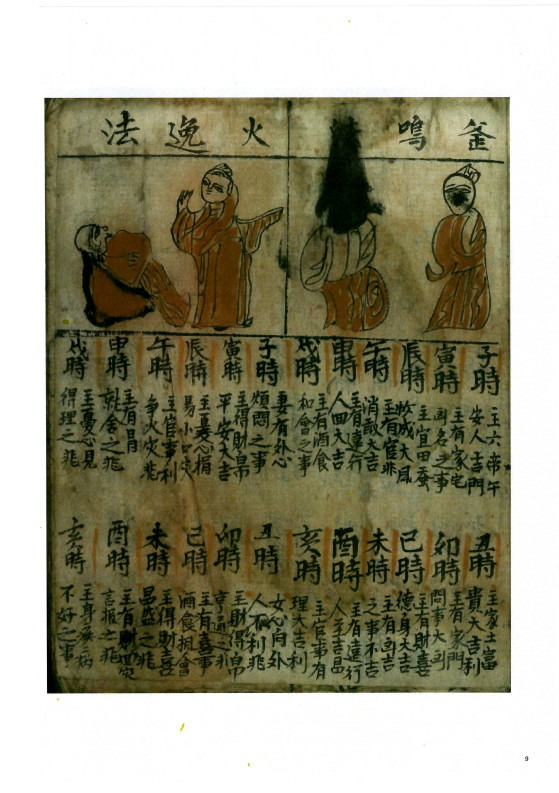 釜鳴
火逸法
子時 主六帝午
安人吉門
寅時 主有家宅
凶名之事
辰時 主宜田蚕
牧成大風
午時 主有官非
消散大吉
申時 主有遠行
人回大吉
戌時 主有酒食
和會之事
丑時 主家土富
貴大吉利
卯時 主有家門
問事大凶
巳時 主有財喜
德身大吉
未時 主有凶吉
之事不吉
酉時 主有遠行
人至吉昌
亥時 主官事有
理大吉利
子時 妻有外心
煩悶之事
寅時 主得財帛
平安大吉
辰時 主憂心損
易小口灾
午時 主官事利
争火灾兆
申時 主有冐
就舍之兆
戌時 主憂心見
得理之兆
丑時 女心向外
人不利兆
卯時 主財得帛
亨通之兆
巳時 主有喜事
酒食執會
未時 主得財喜
昌盛之兆
酉時 主有財
言報之兆
亥時 主身疾之病
不好之事
9